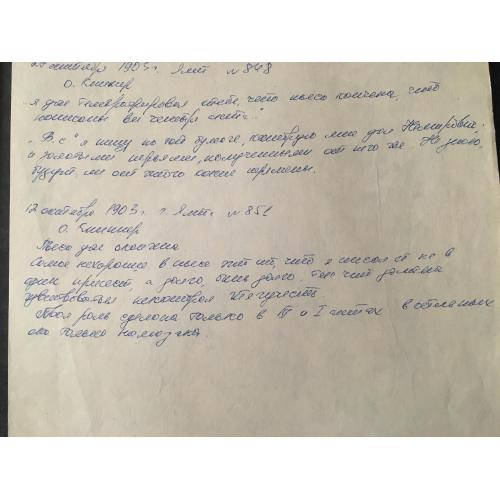 сентября 1903г. Ялт № 848
О. Книпер
я уже телеграфировал тебе, что пьеса кончена, что
написаны все четыре акта.
"В.с" я пишу на той бумаге, которую мне дал Немирович.
и золотыми перьями, полученными от него же. Не знаю,
будут ли от этого какие перемены.
12 октября 1903г. г. Ялт. № 851
О. Книппер
Пьеса уже окончена
Самое нехорошее в пьесе это то, что я писал её не в
один присест, а долго, очень долго, так что должна
чувствоваться некоторая тягучесть
Твоя роль сделана только в III и I актах в остальных
она только намазана.